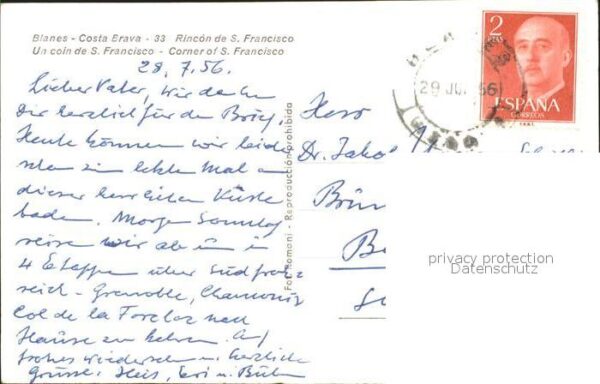 Blanes - Costa Brava - 33 Rincón de S. Francisco
Un coin de S. Francisco - Corner of S. Francisco
28. 7. 56.
Lieber Vater, wir danken
Dir herzlich für den Brief.
Heute können wir leider
zum letzten Mal an
dieser herrlichen Küste
baden. Morgen Sonntag
reisen wir ab um in
4 Etappen über Südfrank-
reich - Grenoble, Chamonix
Col de la Forclaz nach
Hause zu kehren. Auf
frohes Wiedersehen u. herzliche
Grüsse
Fot. Romani - Reproducción prohibida
Herr
Dr. Jakob
2
PTAS
ESPAÑA
CORREOS
29 JUL 56
privacy protection
Datenschutz